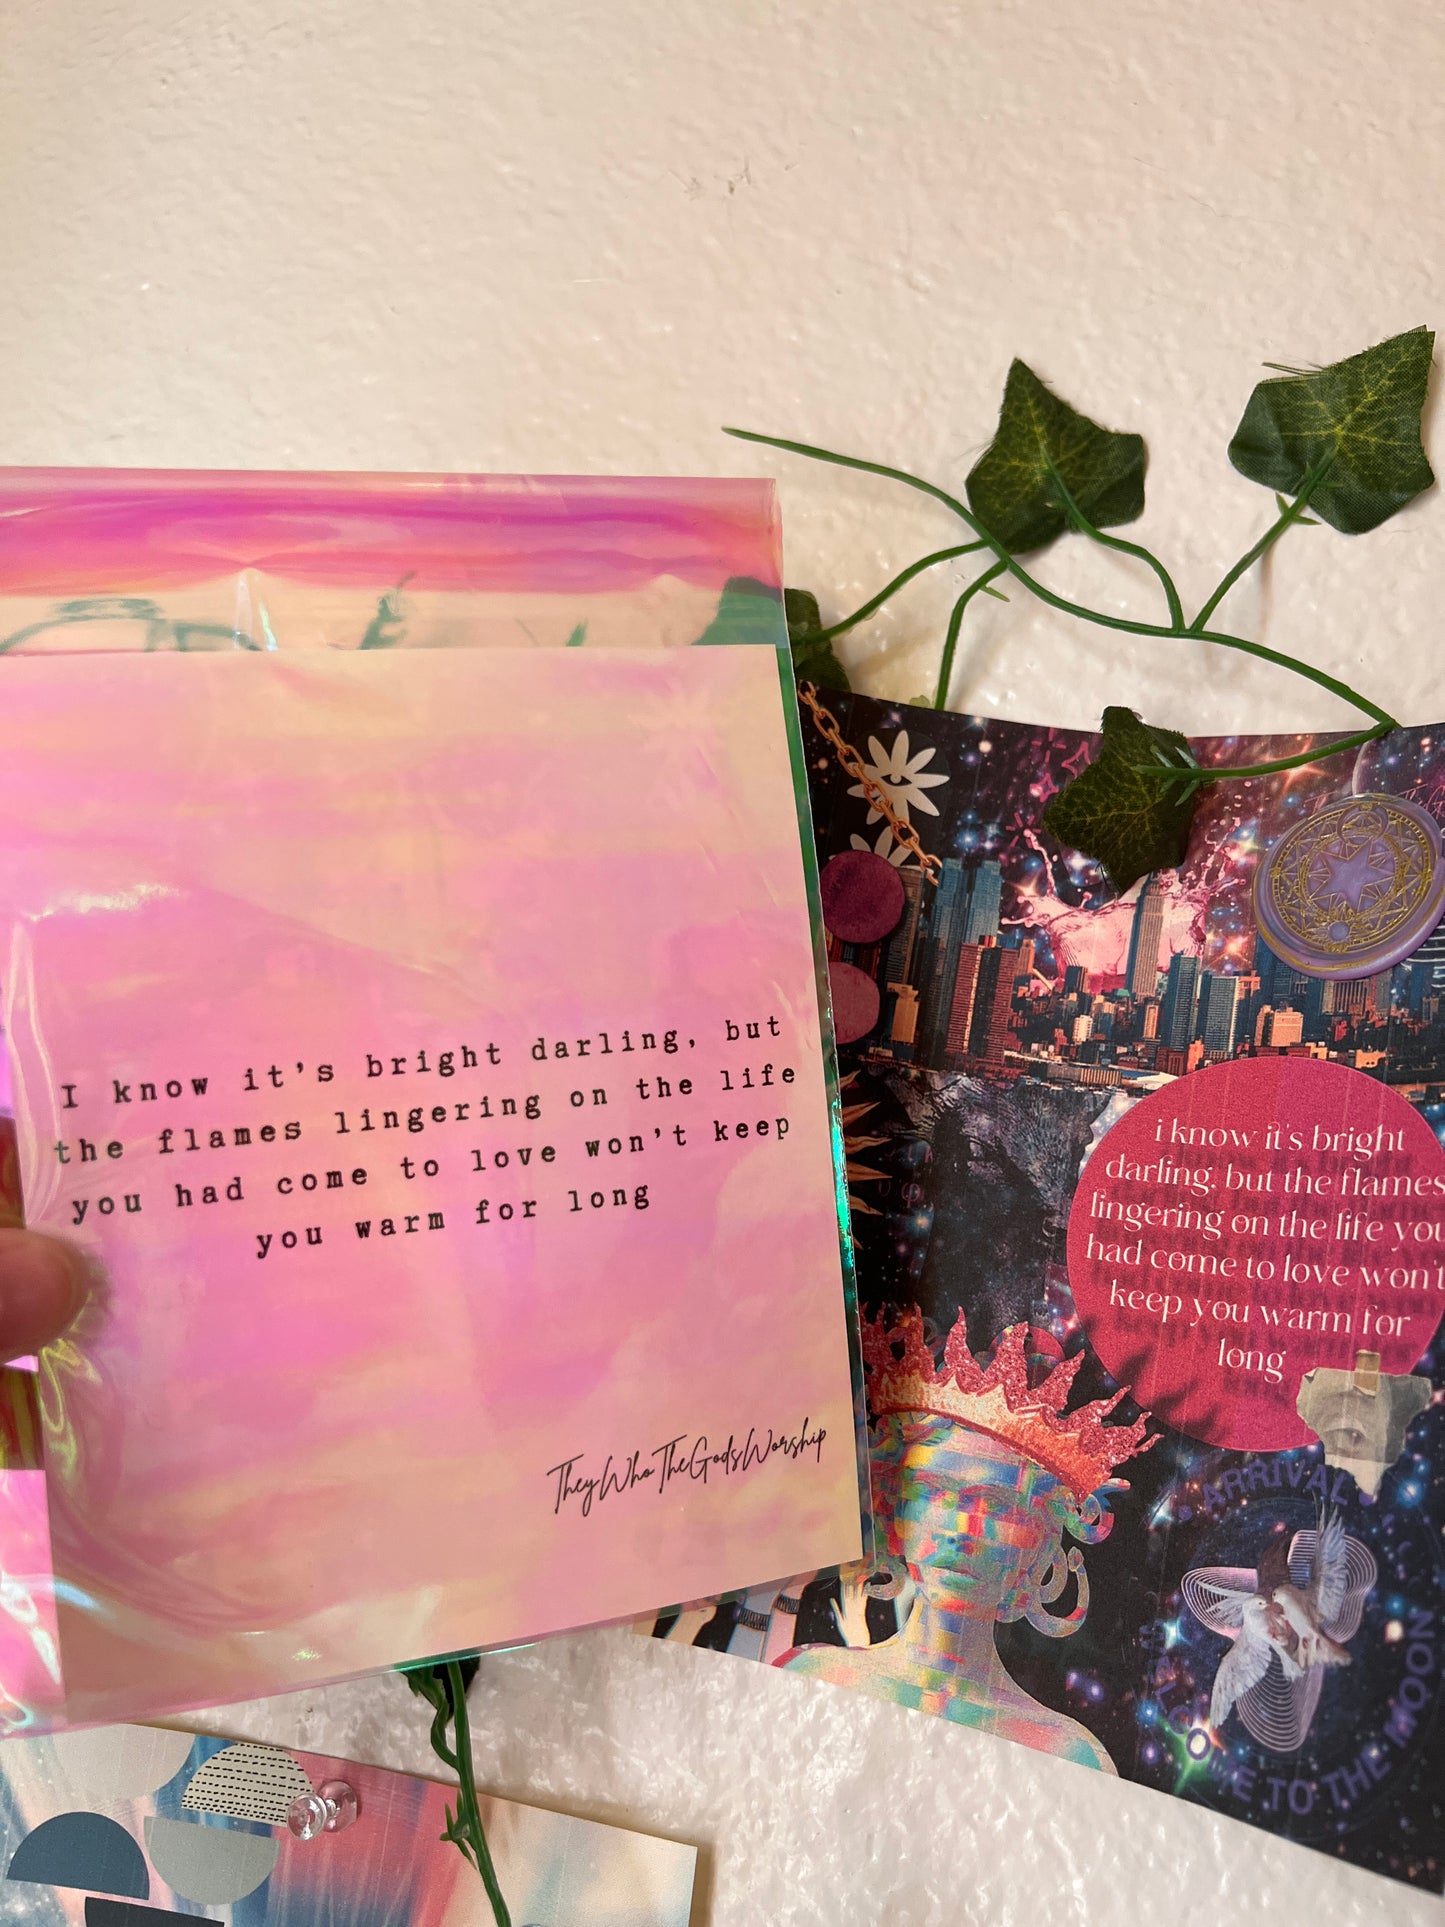 I know it's bright darling, but
the flames lingering on the life
you had come to love won't keep
you warm for long
TheyWhoTheGodsWorship
i know it's bright
darling, but the flames
lingering on the life you
had come to love won't
keep you warm for
long
ARRIVAL
TO THE MOON